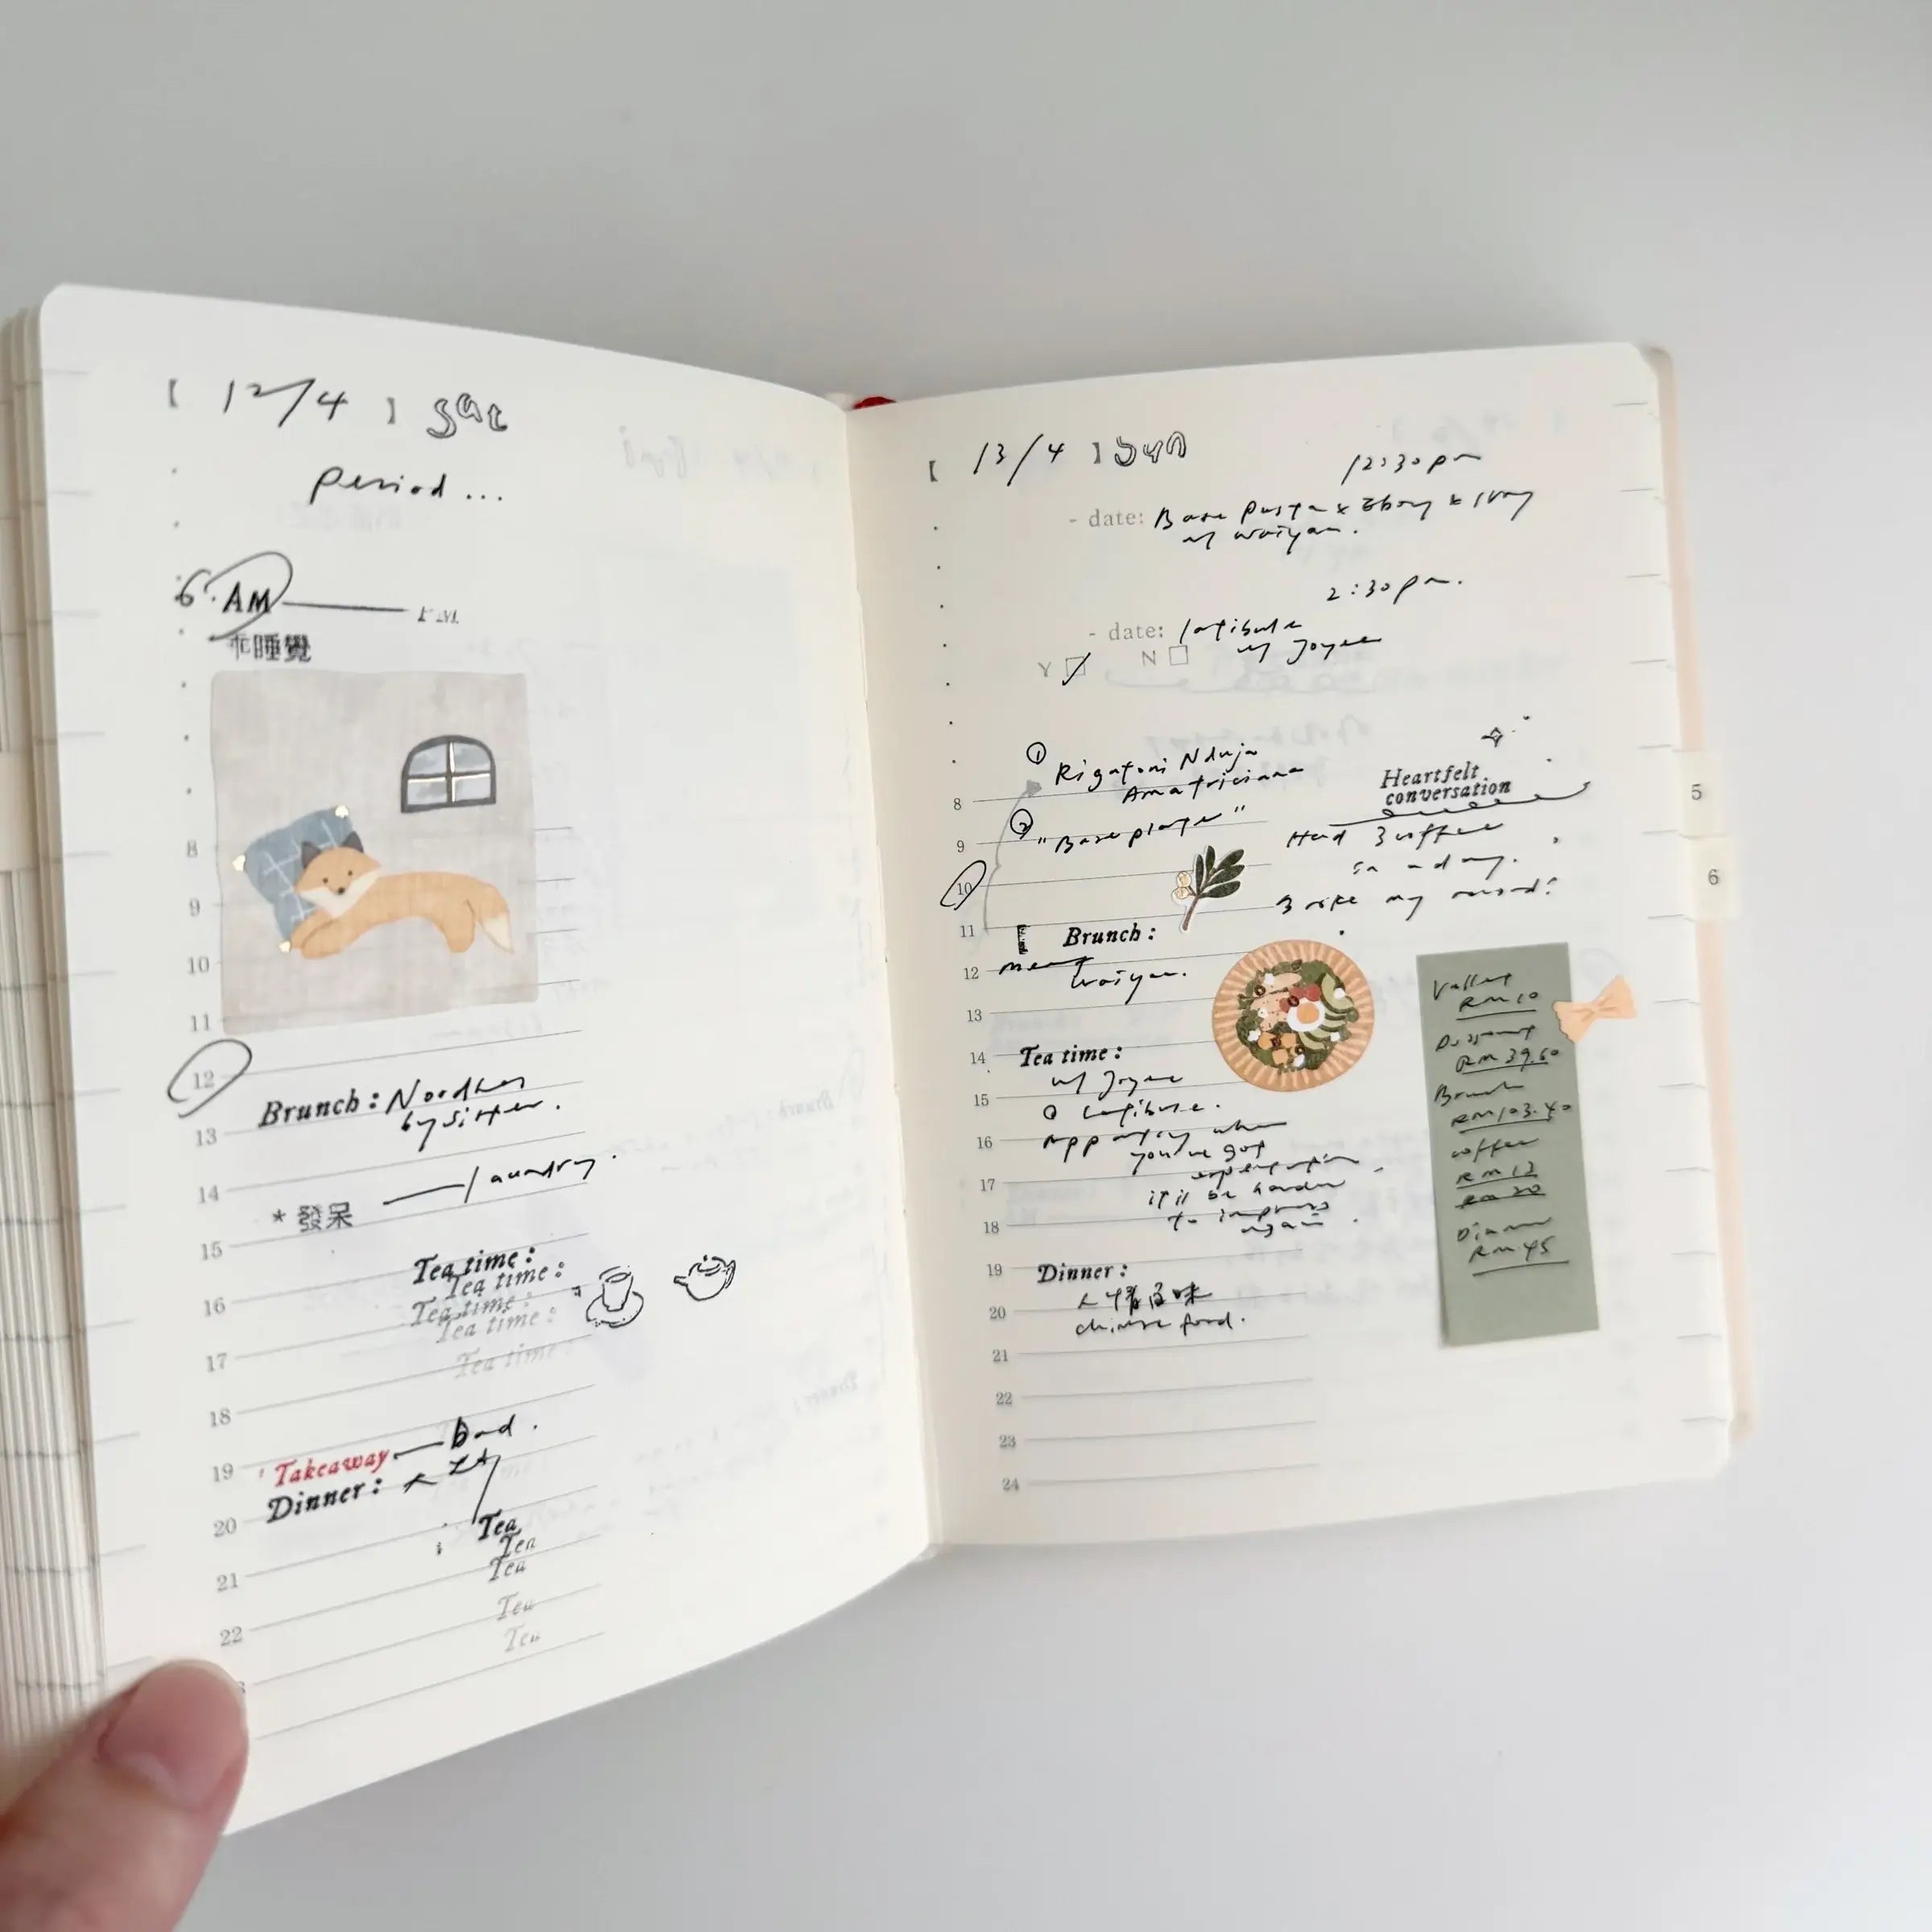 【 12/4 】 Sat
Period...
6. AM — P.M.
睡覺
8
9
10
11
12
Brunch: Noodles
by sister.
13
14
* 發呆 — laundry.
15
Tea time:
Tea time:
Tea time:
Tea time:
Tea time:
16
17
18
19
Takeaway — bad.
Dinner:
20
Tea
Tea
Tea
Tea
Tea
21
22
【 13/4 】 Sun
12:30pm
- date: Base Pasta x Ebony & Ivory
w/ waiyan.
2:30pm.
- date: latibule
w/ Joyee
Y N
① Rigatoni Nduja
Amatriciana
② "Base planter"
Heartfelt
conversation
Had 3 coffee
in a day.
Broke my record!
8
9
10
11
Brunch:
12
waiyan.
13
14
Tea time:
w/ Joyee
15
@ Latibule.
16
when
you've got
17
expectation
it'll be harder
18
to impress
again.
19
Dinner:
20
人情味
chinese food.
21
22
23
24
Valley
RM 10
RM 39.60
Brunch
RM 103.40
coffee
RM 12
RM 20
Dinner
RM 45
5
6